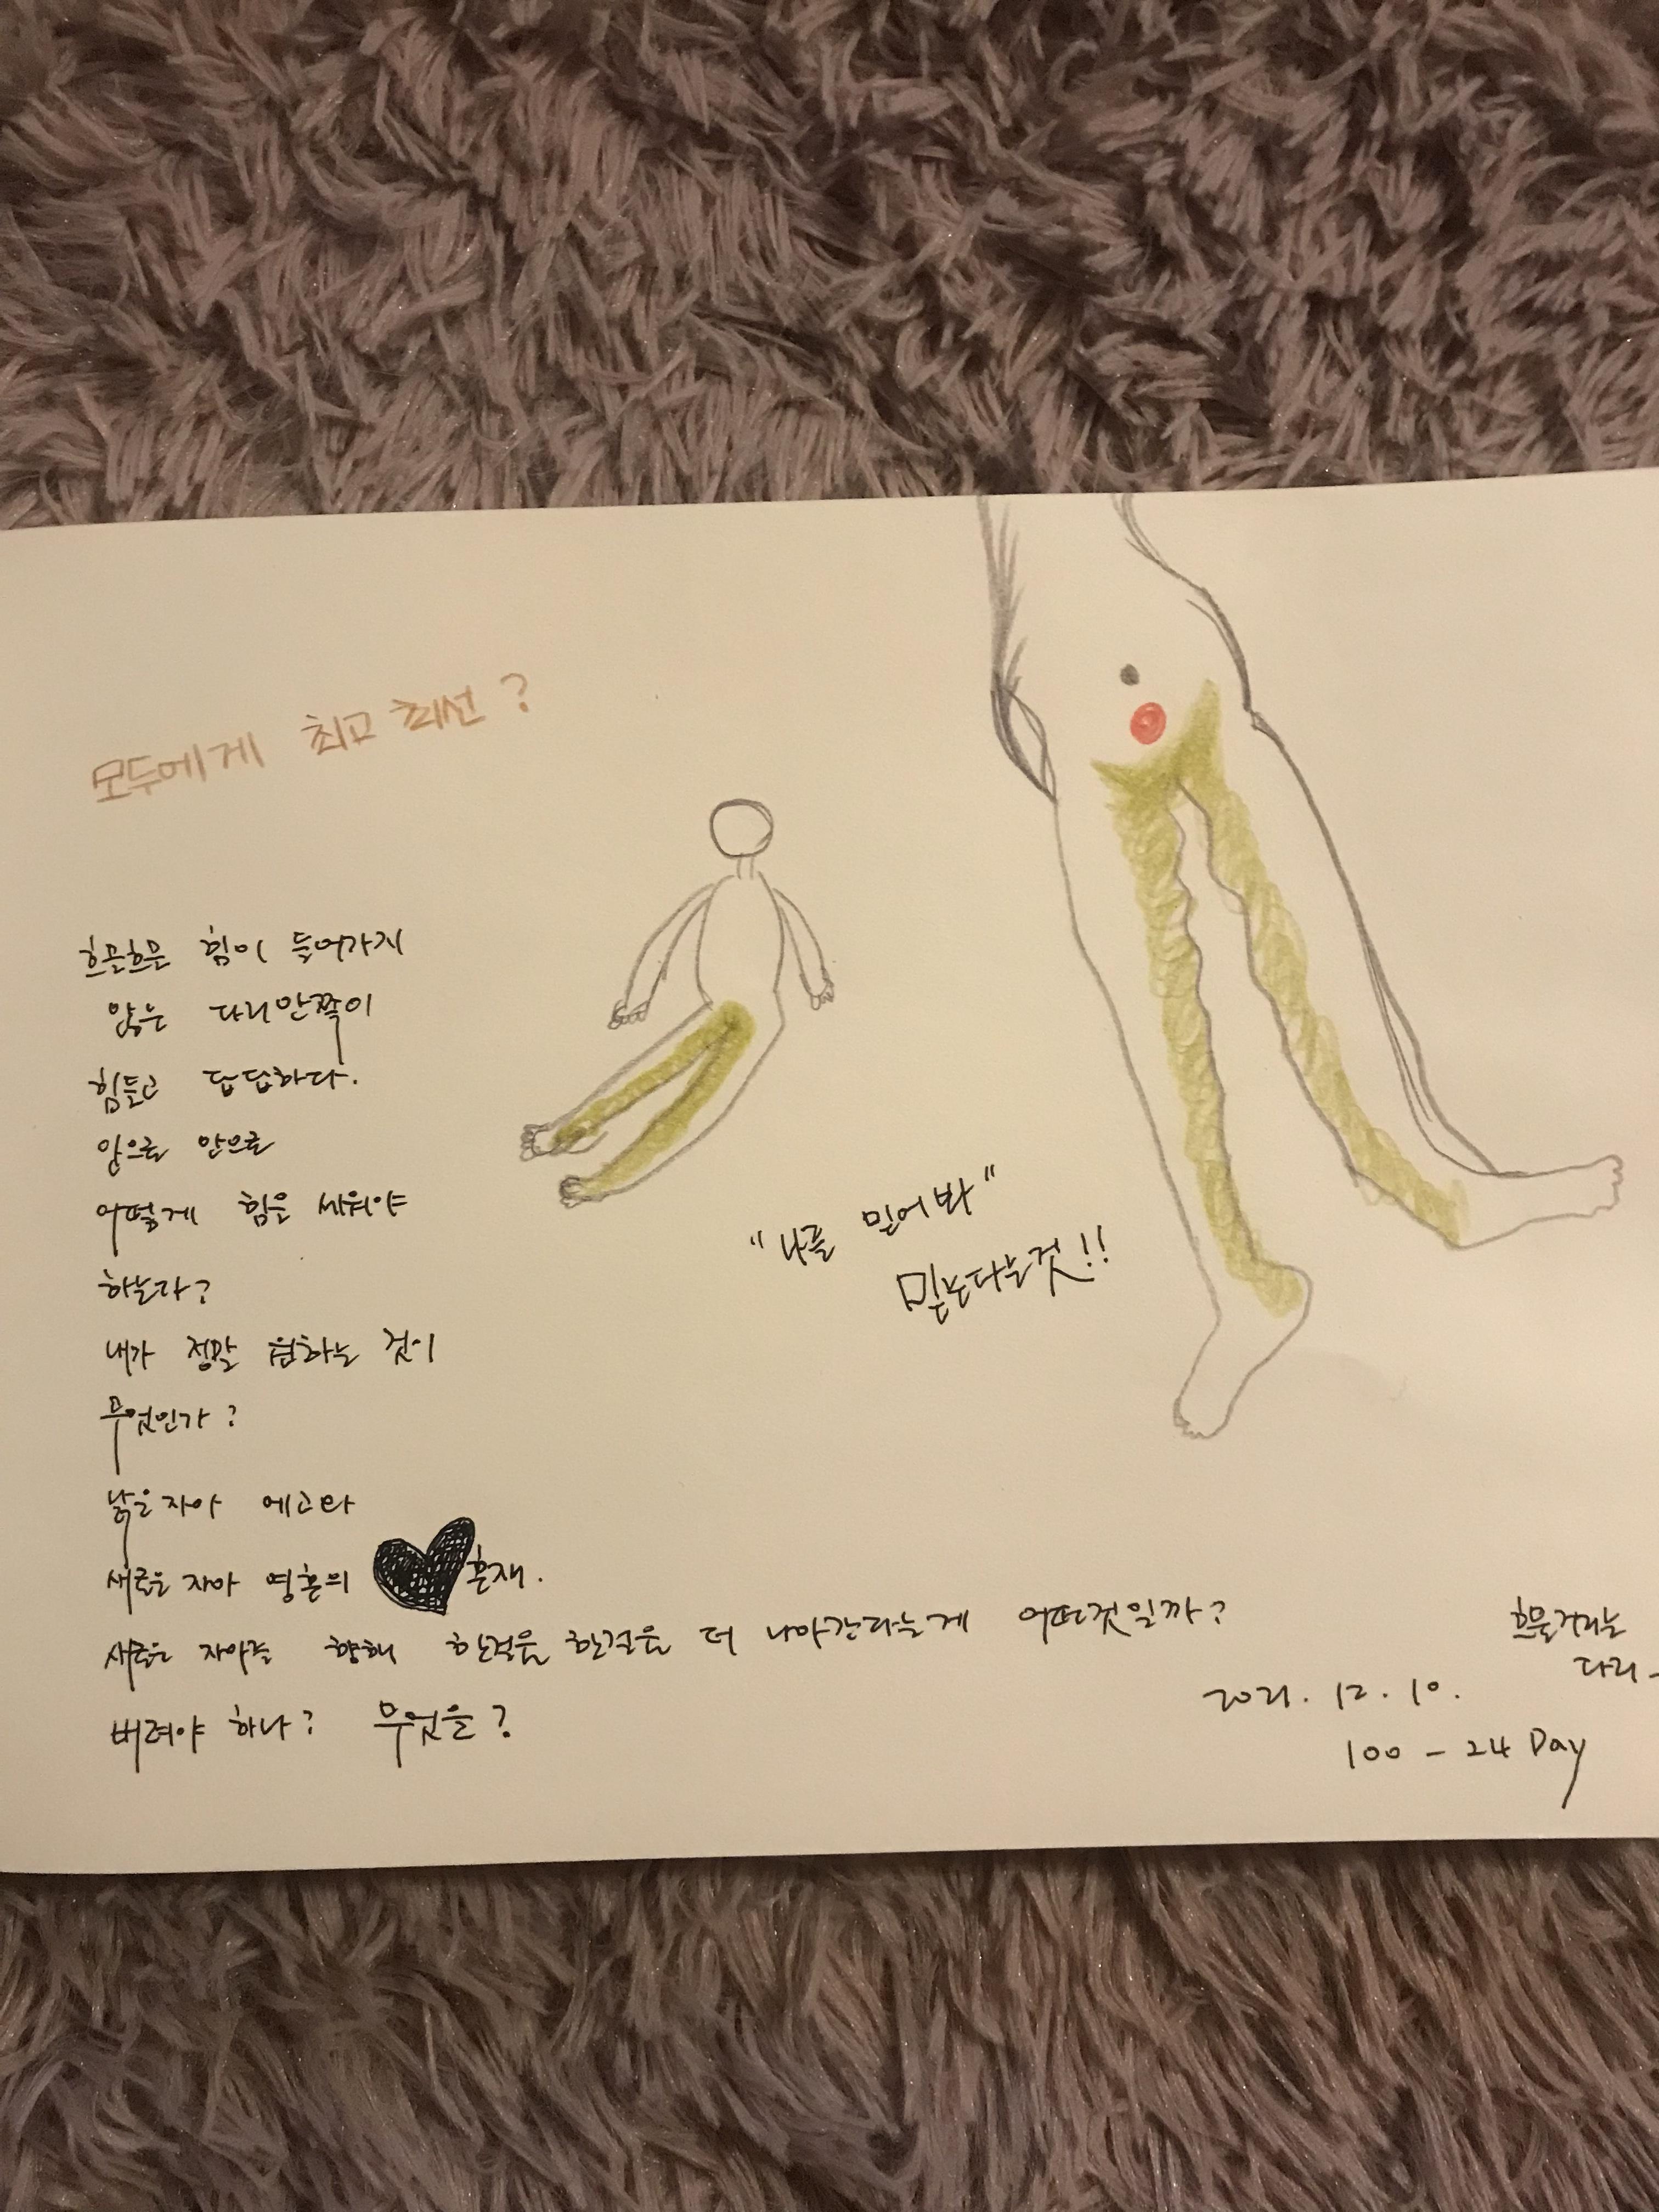 모두에게 최고 최선 ?
흐믈흐믈 힘이 들어가지
않는 다리안쪽이
힘들고 답답하다.
앞으로 안으로
어떻게 힘을 세워야
하는가?
내가 정말 원하는 것이
무엇인가?
낡은자아 에고와
새로운 자아 영혼의 혼재.
새로운 자아를 향해 한걸음 한걸음 더 나아간다는게 어떤것일까?
버려야 하나? 무엇을?
"나를 믿어봐"
믿는다는것!!
흐믈거리는
다리
2021. 12. 10.
100 - 24 Day